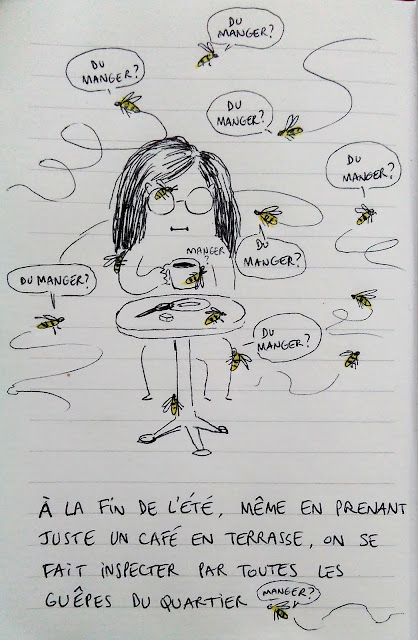 DU
MANGER?
DU
MANGER?
DU
MANGER?
DU
MANGER?
MANGER
?
DU
MANGER?
DU MANGER?
DU
MANGER?
À LA FIN DE L'ÉTÉ, MÊME EN PRENANT
JUSTE UN CAFÉ EN TERRASSE, ON SE
FAIT INSPECTER PAR TOUTES LES
GUÊPES DU QUARTIER
MANGER?